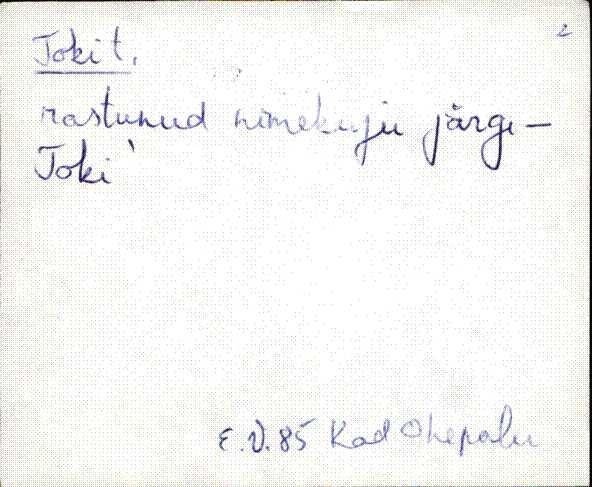 2
Toki t.
rastunud nimekuju järgi –
Toki`
E.V. 85 Kad Ohepalu